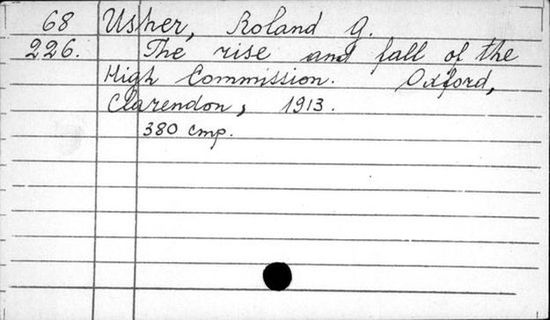 68 Usher, Roland G.
226. The rise and fall of the
High Commission. Oxford,
Clarendon, 1913.
380 стр.